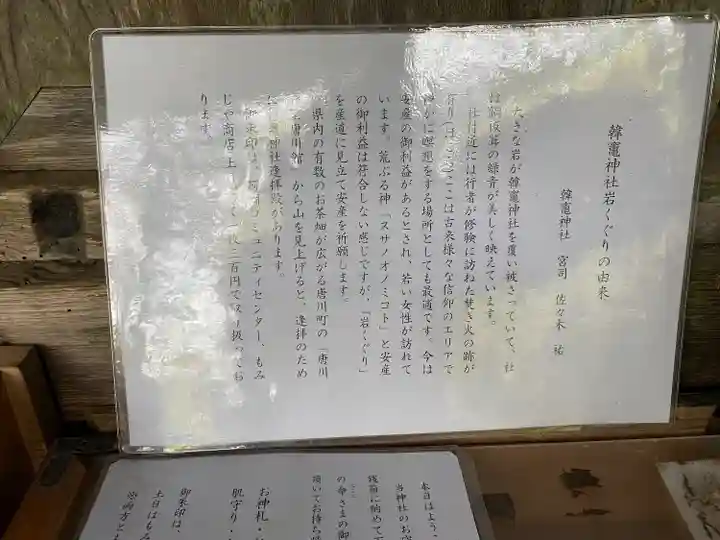 韓竈神社岩くぐりの由来
韓竈神社　宮司　佐々木　祐
大きな岩が韓竈神社を覆い被さっていて、社
は銅板葺の緑青が美しく映えています。
社付近には行者が修験に訪れた焚き火の跡が
ここは古来様々な信仰のエリアで
に瞑想をする場所としても最適です。今は
安産の御利益があるとされ、若い女性が訪れて
います。荒ぶる神「スサノオノミコト」と安産
の御利益は符合しない感じですが、「岩くぐり」
を産道に見立て安産を祈願します。
県内の有数のお茶畑が広がる唐川町の「唐川
館」から山を見上げると、逢拝のため
神社逢拝殿があります。
御朱印は、コミュニティセンター、もみ
じや商店
二百円で取り扱ってお
ります。
本日はよう
当神社のお
銭箱に納めて
の命さまの御
頂いてお持ち
お神札・
肌守り・
御朱印は、
土日はもみ
※両方とも